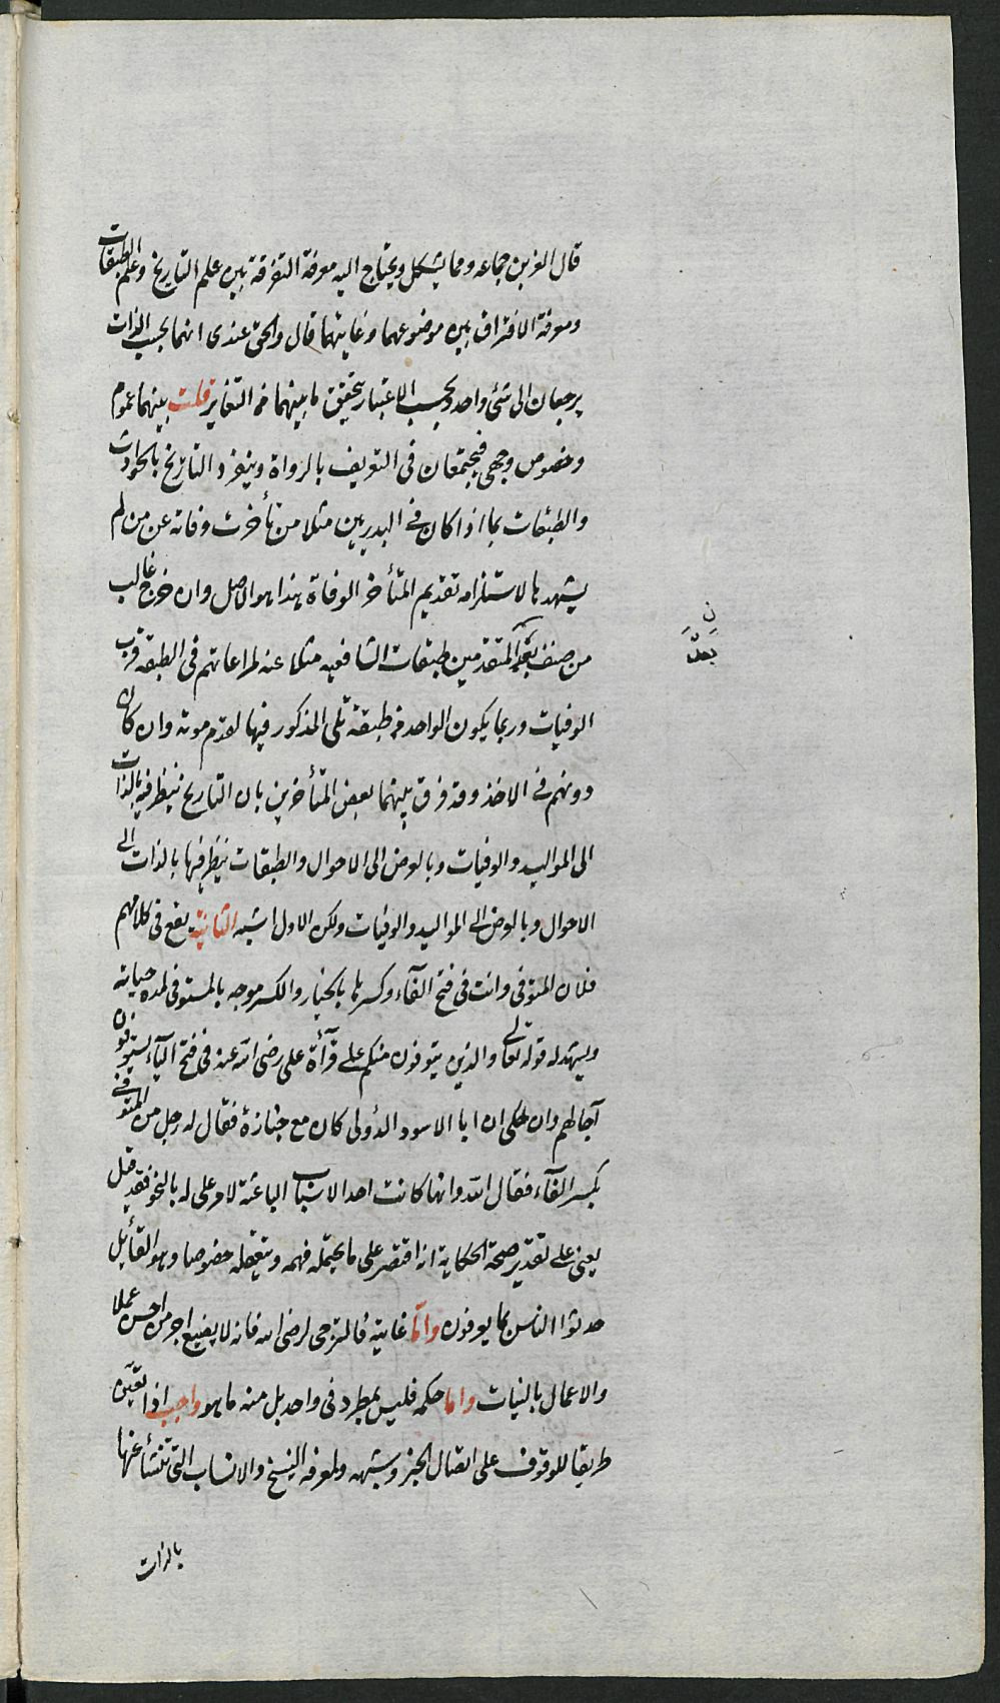 قال العز بن جماعه ومما يشكل ويحتاج اليه معرفة التفرقة بين علم التاريخ وعلم الطبقات
ومعرفة الافتراق بين موضوعهما وغايتهما قال والحق عندى انهما بحسب الذات
يرجعان الى شئ واحد وبحسب الاعتبار يتحقق ما بينهما من التغاير قلت بينهما عموم
وخصوص وجهى فيجتمعان فى التعريف بالرواة وينفرد التاريخ بالحوادث
والطبقات بما اذا كان فى البدريين مثلا من تأخرت وفاته عن من لم
يشهدها لاستلزامه تقديم المتأخر الوفاة هذا هو الاصل وان خرج غالب
من صنف المتقدمين طبقات الشافعيه مثلا عنه لمراعاتهم فى الطبقه قرب
الوفيات وربما يكون الواحد من طبقة تلى المذكور فيها لتقدم موته وان كان
دونهم فى الاخذ وقد فرق بينهما بعض المتأخرين بان التاريخ ينظر فيه بالذات
الى المواليد والوفيات وبالعرض الى الاحوال والطبقات ينظر فيها بالذات الى
الاحوال وبالعرض الى المواليد والوفيات ولكن الاول اشبه الثانية يقع فى كلامهم
فلان المتوفى وانت فى فتح الفآء وكسرها بالخيار والكسر موجه بالمستوفى لمدة حياته
ويشهد له قوله تعالى والذين يتوفون منكم على قرآءة على رضى الله عنه فى فتح اليآء يستوفون
آجالهم وان حكى ان ابا الاسود الدؤلى كان مع جنازة فقال له رجل من المتوفى
بكسر الفآء فقال الله وانها كانت احد الاسباب الباعثة لامر على له بالنحو فقد قيل
يعنى على تقدير صحة الحكاية انه اقتصر على ما يحتمله فهمه ويتعقله خصوصا وهو القائل
حدثوا الناس بما يعرفون واما غايته فالترجى لرضى الله فانه لا يضيع اجر من احسن عملا
والاعمال بالنيات واما حكمه فليس بمطرد فى واحد بل منه ما هو واجب اذا تعين
طريقا للوقوف على اتصال الخبر وشبهه ولمعرفه النسخ والانساب التى تنشأ عنها
بالذات